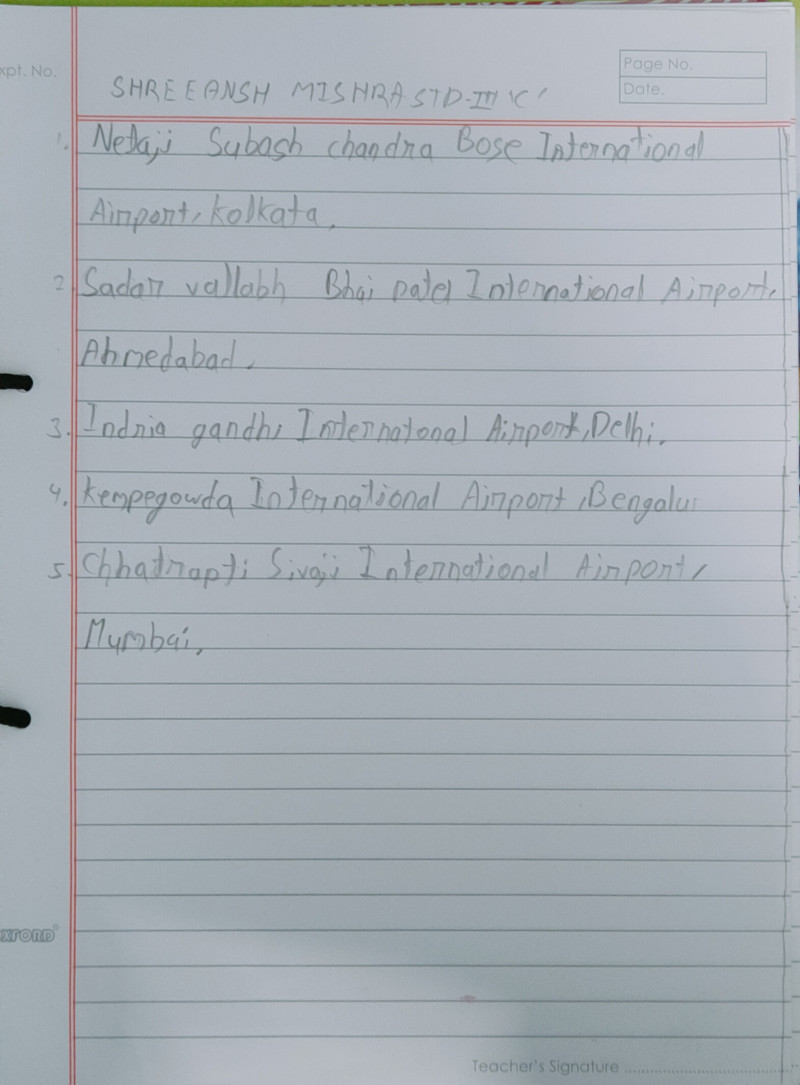 xpt. No.
Page No.
Date.
SHREEANSH MISHRA STD-III 'C'
1. Netaji Subash chandra Bose International
Airport, Kolkata.
2. Sadar vallabh Bhai patel International Airport,
Ahmedabad.
3. Indria gandhi Internatonal Airport, Delhi.
4. Kempegowda International Airport, Bengalur
5. Chhatrapti Sivaji International Airport,
Mumbai.
XFORD
Teacher's Signature